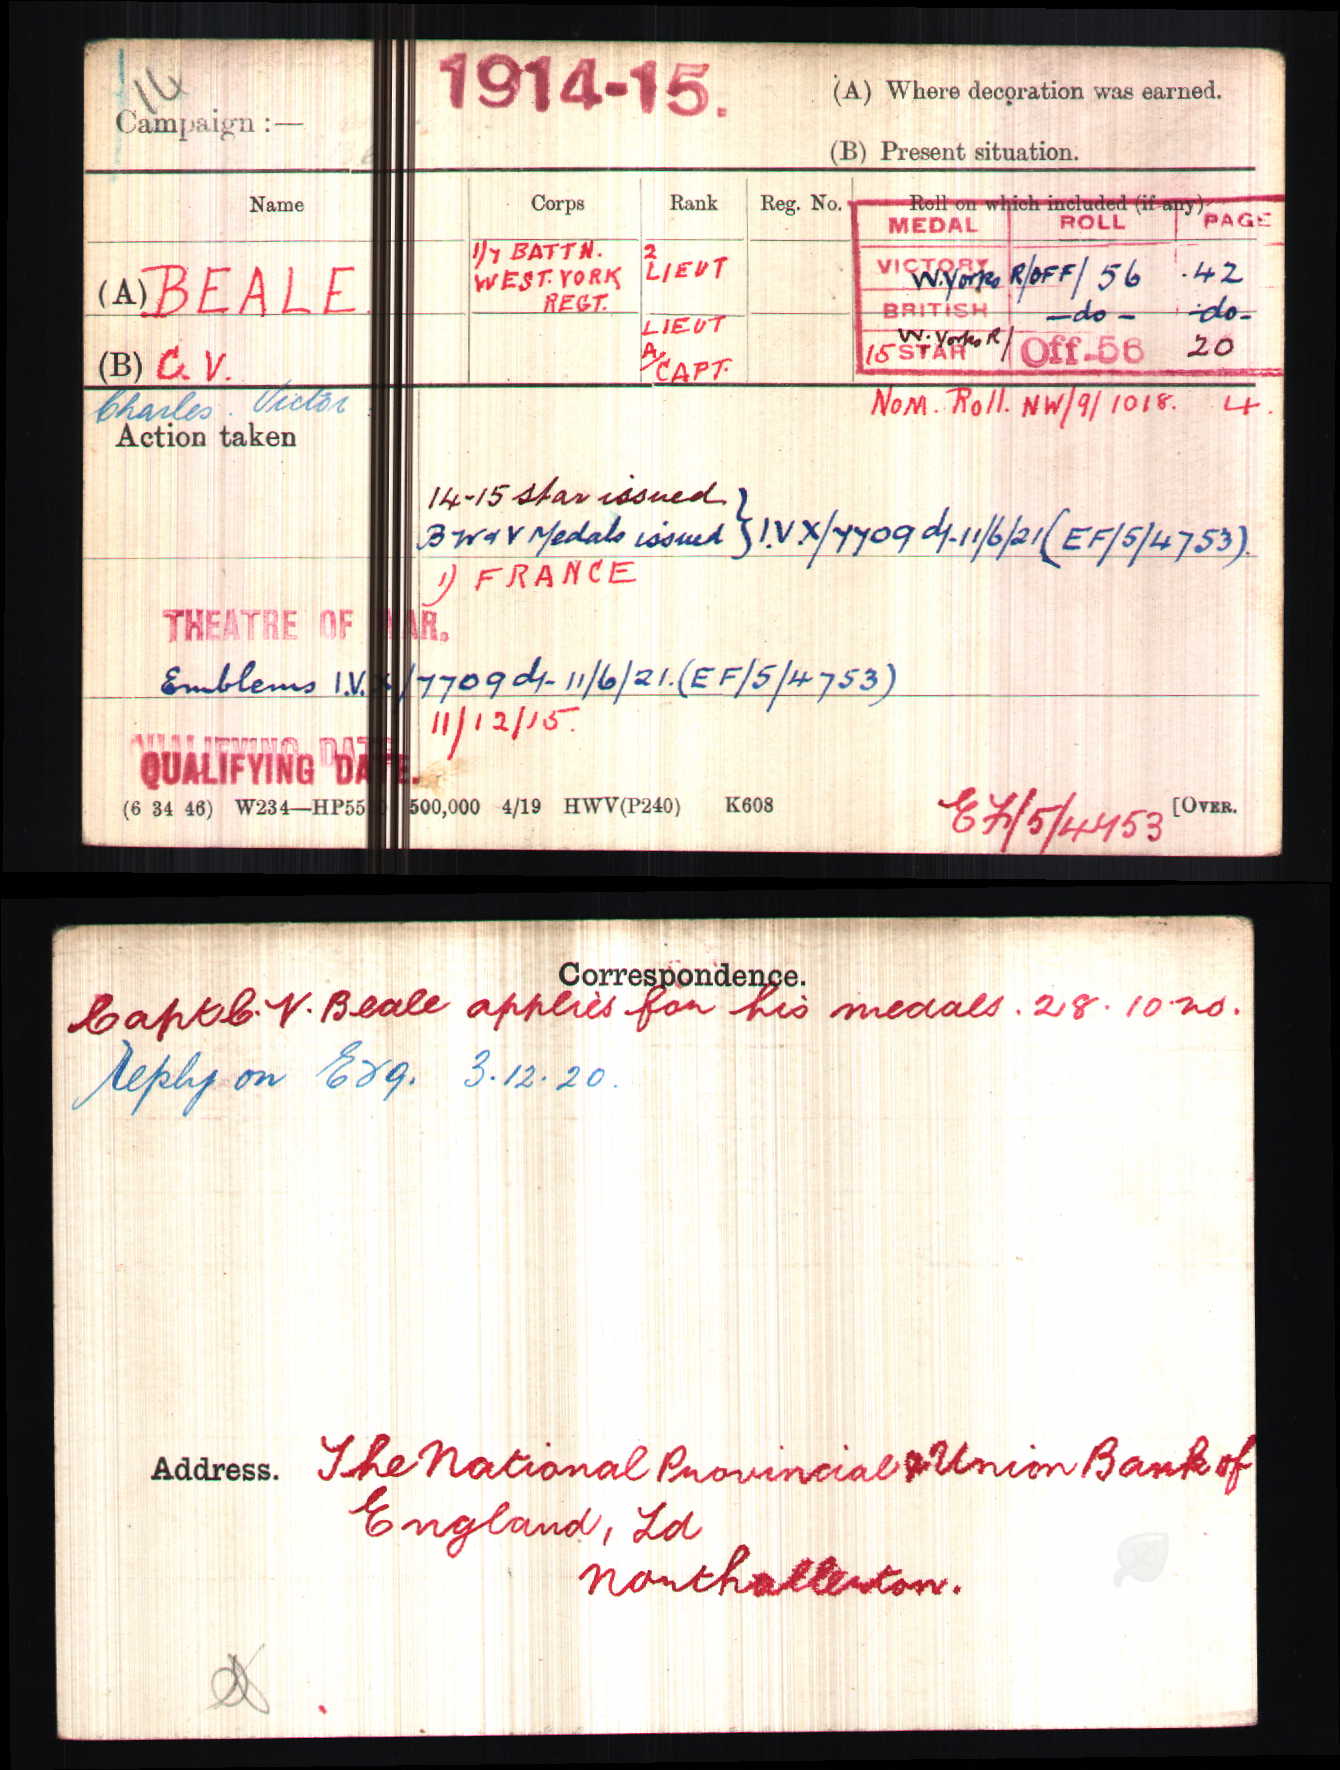 14
1914-15.
Campaign :—
(A) Where decoration was earned.
(B) Present situation.
Name Corps Rank Reg. No. Roll on which included (if any)
MEDAL ROLL PAGE
(A) BEALE
1/7 BATTN.
WEST. YORK
REGT.
2
LIEUT
VICTORY W.Yorks R/OFF/56 42
BRITISH —do— -do-
(B) C. V.
LIEUT
A/CAPT.
15 STAR W.Yorks R/ Off-56 20
Charles. Victor
Nom. Roll. NW/9/1018. 4.
Action taken
14-15 Star issued
B W & V Medals issued } I.V.X/7709 d/-11/6/21(EF/5/4753).
1) FRANCE
THEATRE OF WAR.
Emblems I.V.X/7709 d/- 11/6/21.(EF/5/4753)
11/12/15.
QUALIFYING DATE
QUALIFYING DATE.
(6 34 46) W234—HP55 500,000 4/19 HWV(P240) K608
EF/5/4753
[OVER.
Correspondence.
Capt C. V. Beale applies for his medals. 28. 10 20.
Reply on 3.12.20.
Address. The National Provincial & Union Bank of
England, Ld
Northallerton.